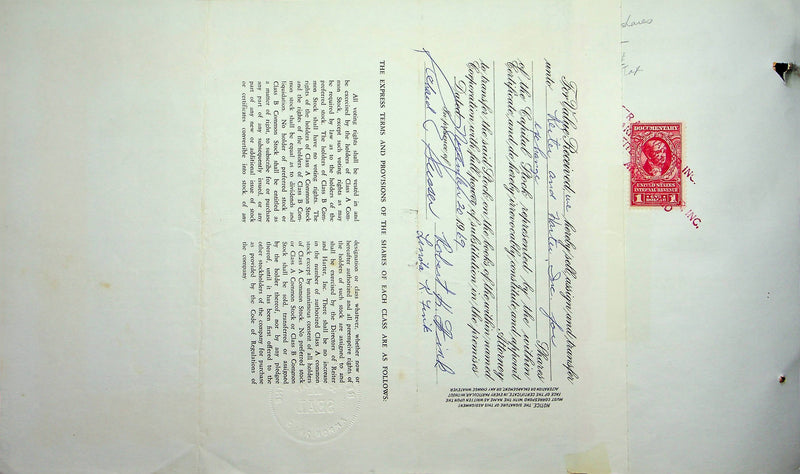 For Value Received, we hereby sell, assign and transfer
unto Reiter and Harter, Inc. for
exchange Shares
of the Capital Stock represented by the within
Certificate, and do hereby irrevocably constitute and appoint
Attorney
to transfer the said Stock on the books of the within named
Corporation with full power of substitution in the premises
Dated 20 1969
In presence of
NOTICE. THE SIGNATURE OF THIS ASSIGNMENT
MUST CORRESPOND WITH THE NAME AS WRITTEN UPON THE
FACE OF THE CERTIFICATE, IN EVERY PARTICULAR, WITHOUT
ALTERATION OR ENLARGEMENT, OR ANY CHANGE WHATEVER
THE EXPRESS TERMS AND PROVISIONS OF THE SHARES OF EACH CLASS ARE AS FOLLOWS:
All voting rights shall be vested in and
be exercised by the holders of Class A Com-
mon Stock, except such voting rights as may
be required by law as to the holders of the
preferred stock. The holders of Class B Com-
mon Stock shall have no voting rights. The
rights of the holders of Class A Common Stock
and the rights of the holders of Class B Com-
mon stock shall be equal as to dividends and
liquidation. No holder of preferred stock or
Class B Common Stock shall be entitled as
a matter of right, to subscribe for or purchase
any part of any subsequently issued, or any
part of any new or additional issue of stock
or certificates convertible into stock, of any
designation or class whatever, whether now or
hereafter authorized and all preemptive rights of
the holders of such stock are assigned to and
shall be exercised by the Directors of Reiter
and Harter, Inc. There shall be no increase
in the number of authorized Class A common
stock except by unanimous consent of all holders
of Class A Common Stock. No preferred stock
or Class A Common Stock or Class B Common
Stock shall be sold, transferred or assigned
by the holder thereof, nor by any pledgee
thereof, until it has been first offered to the
other stockholders of the company for purchase
as provided by the Code of Regulations of
the company
shares
DOCUMENTARY
UNITED STATES
INTERNAL REVENUE
1 DOLLAR 1
INC.
INC.
SEAL